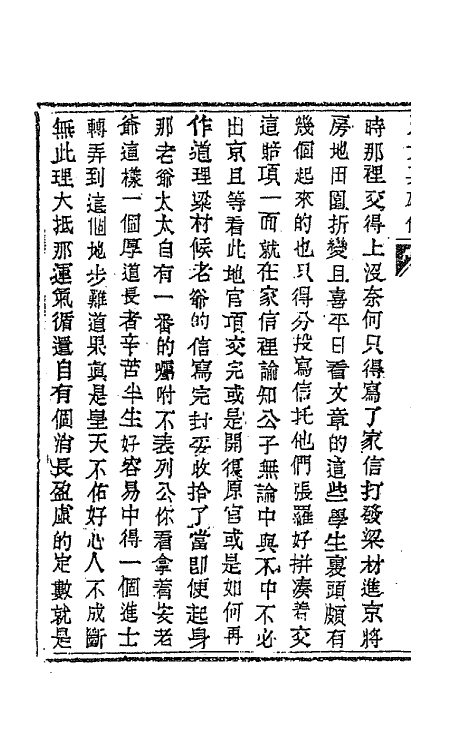 時那裡交得上沒奈何只得寫了家信打發梁材進京將
房地田園折變且喜平日看文章的這些學生裏頭頗有
幾個起來的也只得分投寫信托他們張羅好拼湊着交
這賠項一面就在家信裡諭知公子無論中與不中不必
出京且等看此地官項交完或是開復原官或是如何再
作道理梁材候老爺的信寫完封妥收拾了當即便起身
那老爺太太自有一番的囑咐不表列公你看拿着安老
爺這樣一個厚道長者辛苦半生好容易中得一個進士
轉弄到這個地步難道果真是皇天不佑好心人不成斷
無此理大抵那運氣循還自有個消長盈虛的定數就是